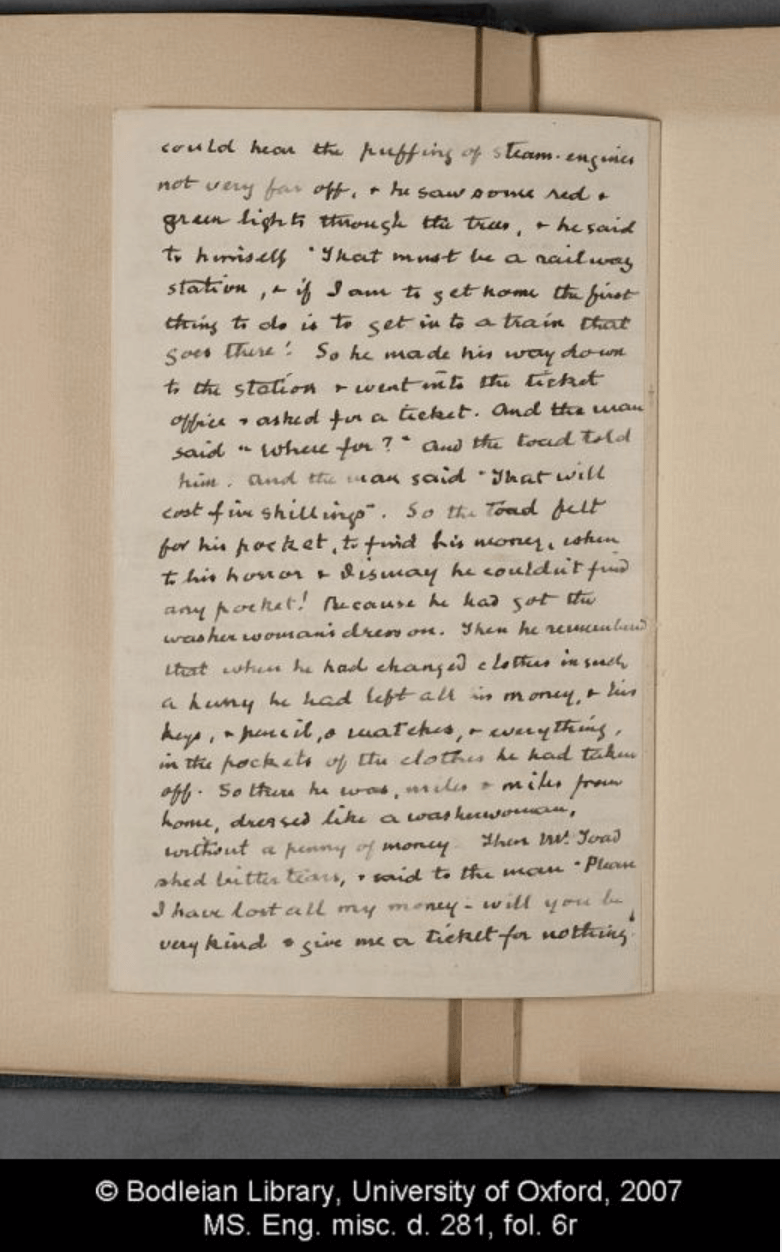 could hear the puffing of steam-engines
not very far off, & he saw some red &
green lights through the trees, & he said
to himself "That must be a railway
station, & if I am to get home the first
thing to do is to get into a train that
goes there! So he made his way down
to the station & went into the ticket
office & asked for a ticket. And the man
said "where for?" and the toad told
him. and the man said "That will
cost five shillings". So the Toad felt
for his pocket, to find his money, when
to his horror & dismay he couldn't find
any pocket! Because he had got the
washerwoman's dress on. Then he remembered
that when he had changed clothes in such
a hurry he had left all his money, & his
keys, & pencil, & matches, & everything,
in the pockets of the clothes he had taken
off. So there he was, miles & miles from
home, dressed like a washerwoman,
without a penny of money. Then Mr. Toad
shed bitter tears, & said to the man "Please
I have lost all my money - will you be
very kind & give me a ticket for nothing!
© Bodleian Library, University of Oxford, 2007
MS. Eng. misc. d. 281, fol. 6r